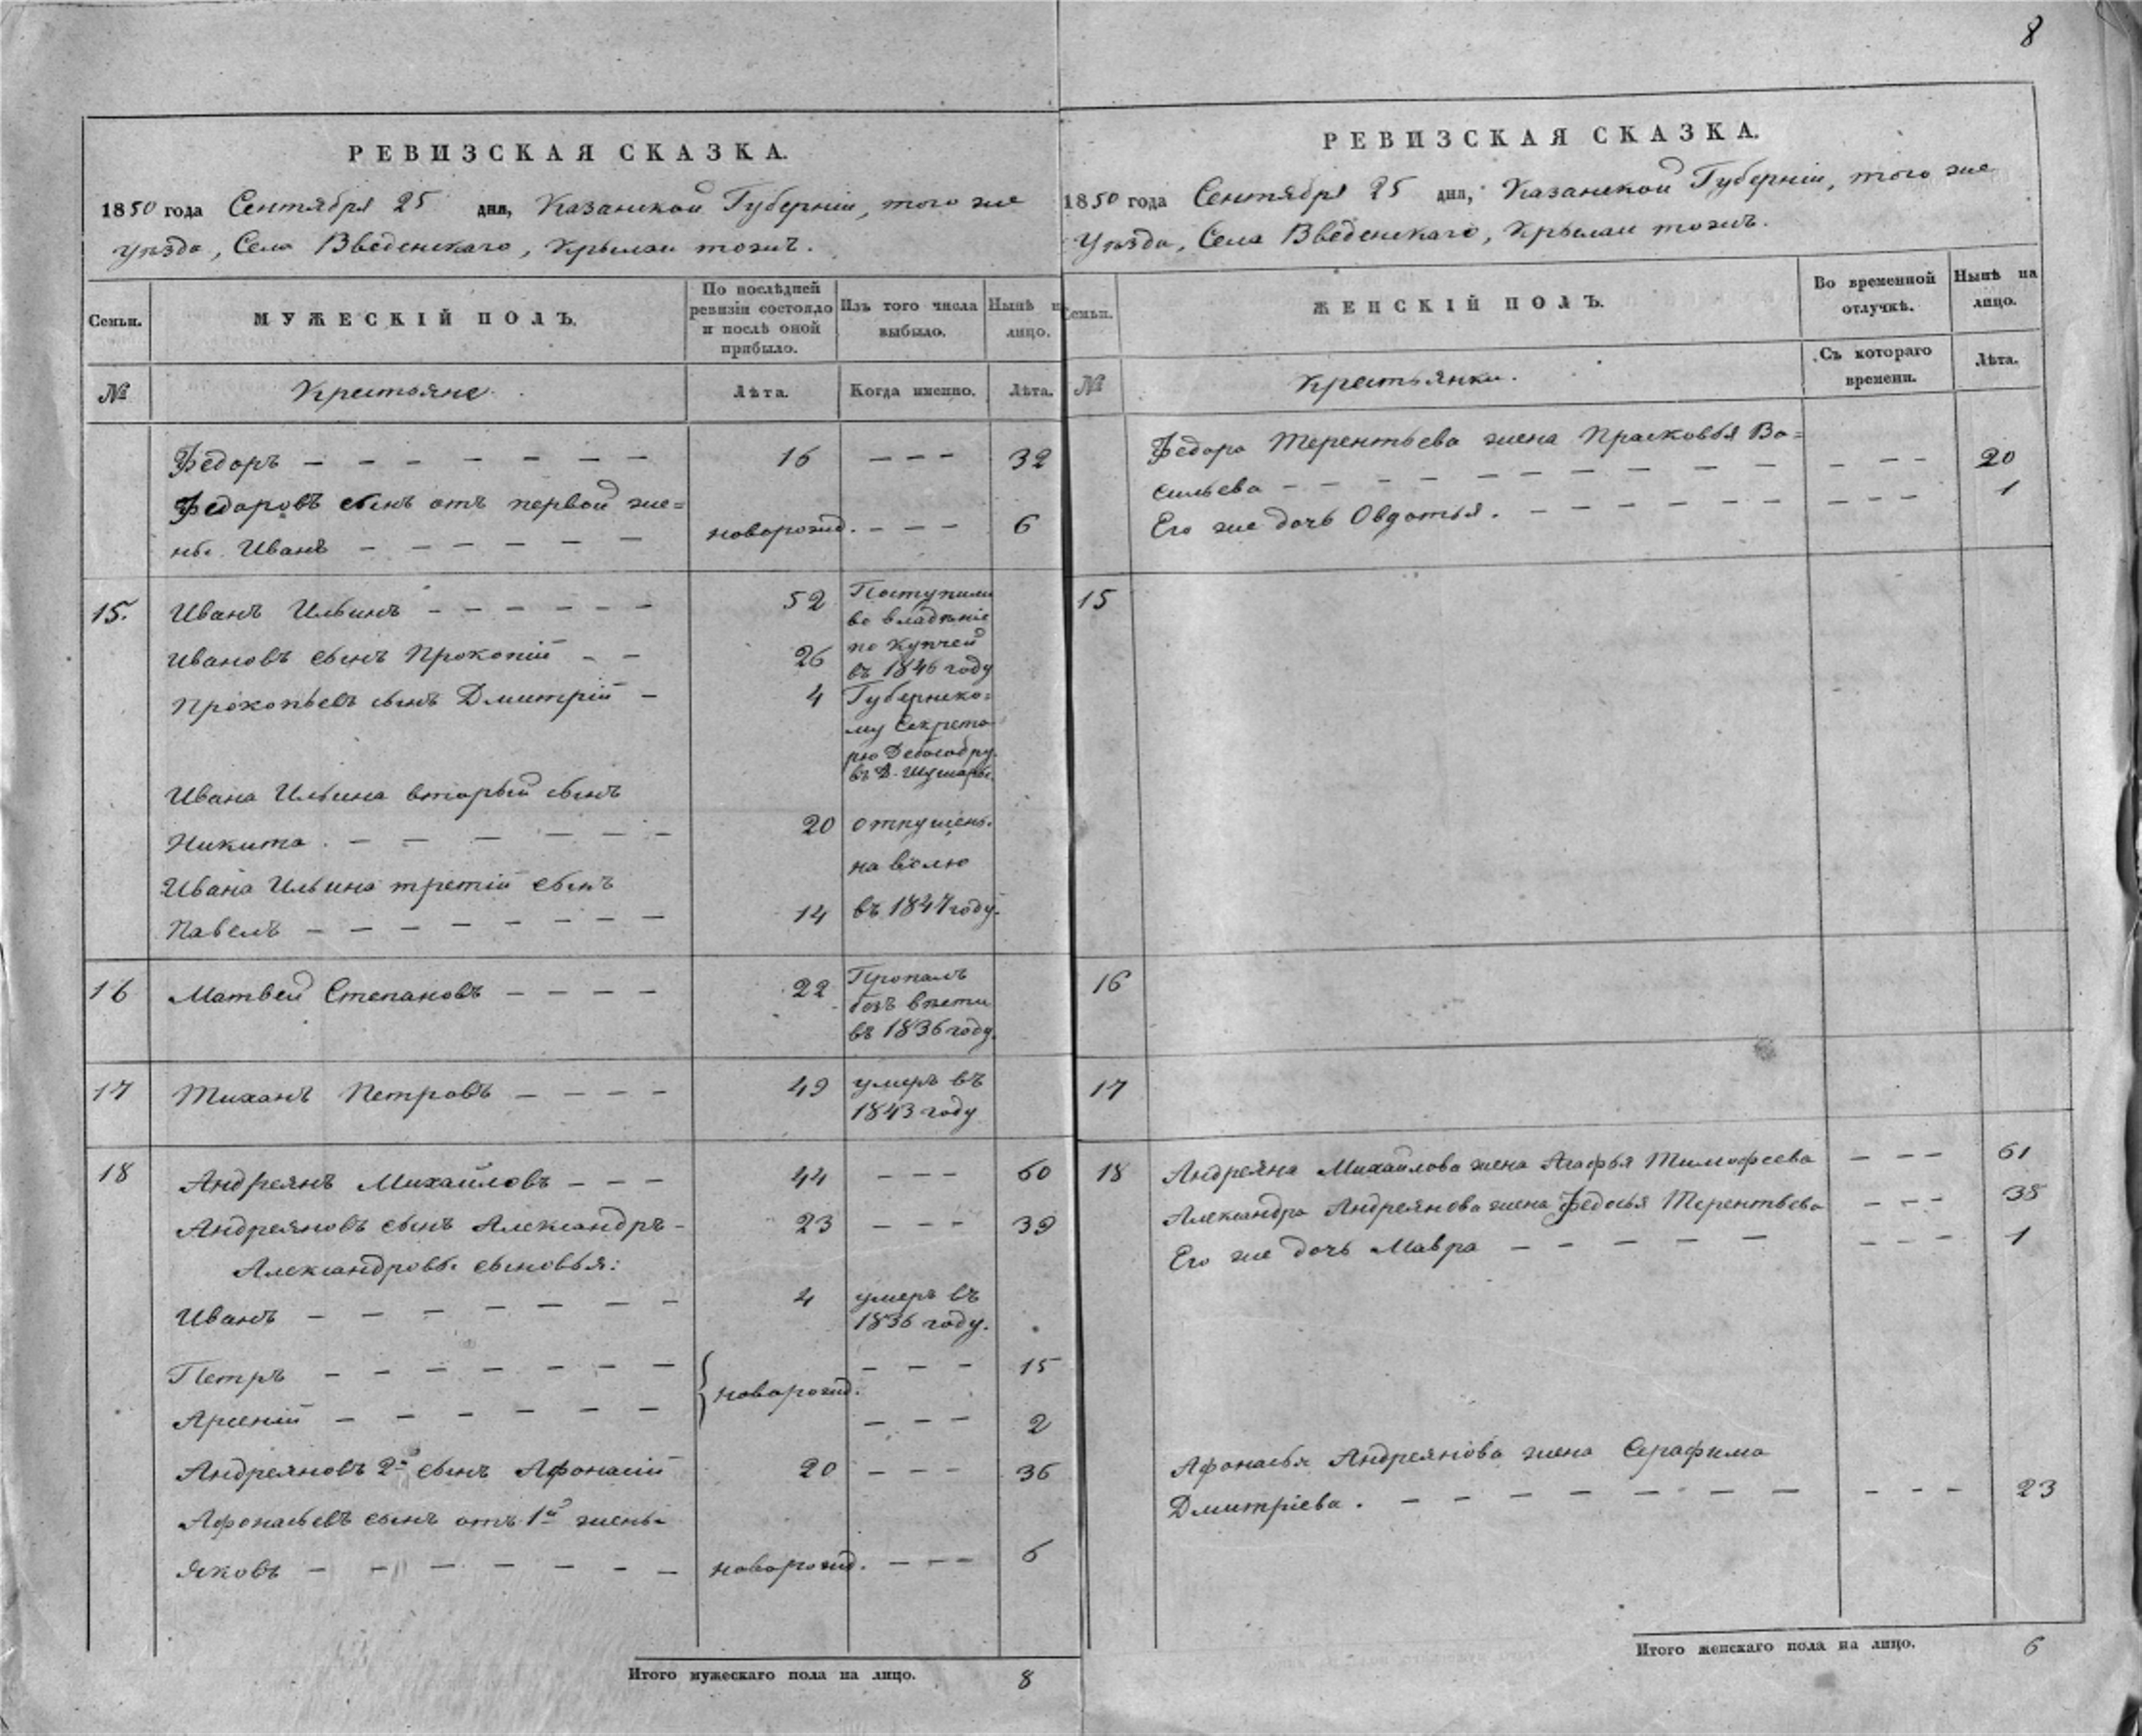 8
РЕВИЗСКАЯ СКАЗКА.
1850 года Сентября 25 дня, Казанской Губерніи, того же
уѣзда, Села Введенскаго, Крылаи тожъ.
Семьи.
МУЖЕСКІЙ ПОЛЪ.
По послѣдней
ревизіи состояло
и послѣ оной
прибыло.
Изъ того числа
выбыло.
Нынѣ на
лицо.
№
Крестьяне.
Лѣта.
Когда именно.
Лѣта.
Федоръ — — — — — — — 16 — — — 32
Федоровъ сынъ отъ первой же=
ны Иванъ — — — — — — новорожд. — — — 6
15. Иванъ Ильинъ — — — — — — 52
Ивановъ сынъ Прокопій — — 26
Прокопьевъ сынъ Дмитрій — 4
Поступили
во владѣніе
по купчей
въ 1846 году
Губернско=
му Секрета
рю
въ Д.
Ивана Ильина вторый сынъ
Никита. — — — — — — 20 отпущены
на волю
Ивана Ильина третій сынъ
Павелъ — — — — — — — 14 въ 1847 году.
16 Матвей Степановъ — — — — 22 Пропалъ
безъ вѣсти
въ 1836 году.
17 Тиханъ Петровъ — — — — 49 умеръ въ
1843 году
18 Андреянъ Михайловъ — — — 44 — — — 60
Андреяновъ сынъ Александръ - 23 — — — 39
Александровы сыновья:
Иванъ — — — — — — — 4 умеръ въ
1836 году.
Петръ — — — — — — — новорожд. — — — 15
Арсеній — — — — — — — — — 2
Андреяновъ 2й сынъ Афонасій 20 — — — 36
Афонасьевъ сынъ отъ 1й жены
Яковъ — — — — — — — новорожд. — — — 6
Итого мужескаго пола на лицо. 8
РЕВИЗСКАЯ СКАЗКА.
1850 года Сентября 25 дня, Казанской Губерніи, того же
Уѣзда, Села Введенскаго, Крылаи тожъ.
Семьи.
ЖЕНСКІЙ ПОЛЪ.
Во временной
отлучкѣ.
Нынѣ на
лицо.
№
Крестьянки.
Съ котораго
времени.
Лѣта.
Федора Терентьева жена Прасковья Ва=
сильева — — — — — — — — — — — — 20
Его же дочь Овдотья. — — — — — — — — — 1
15
16
17
18 Андреяна Михайлова жена Агафья Тимофеева — — — 61
Александра Андреянова жена Федосья Терентьева — — — 38
Его же дочь Мавра — — — — — — — — — 1
Афонасья Андреянова жена Серафима
Дмитріева. — — — — — — — — — — — 23
Итого женскаго пола на лицо. 6